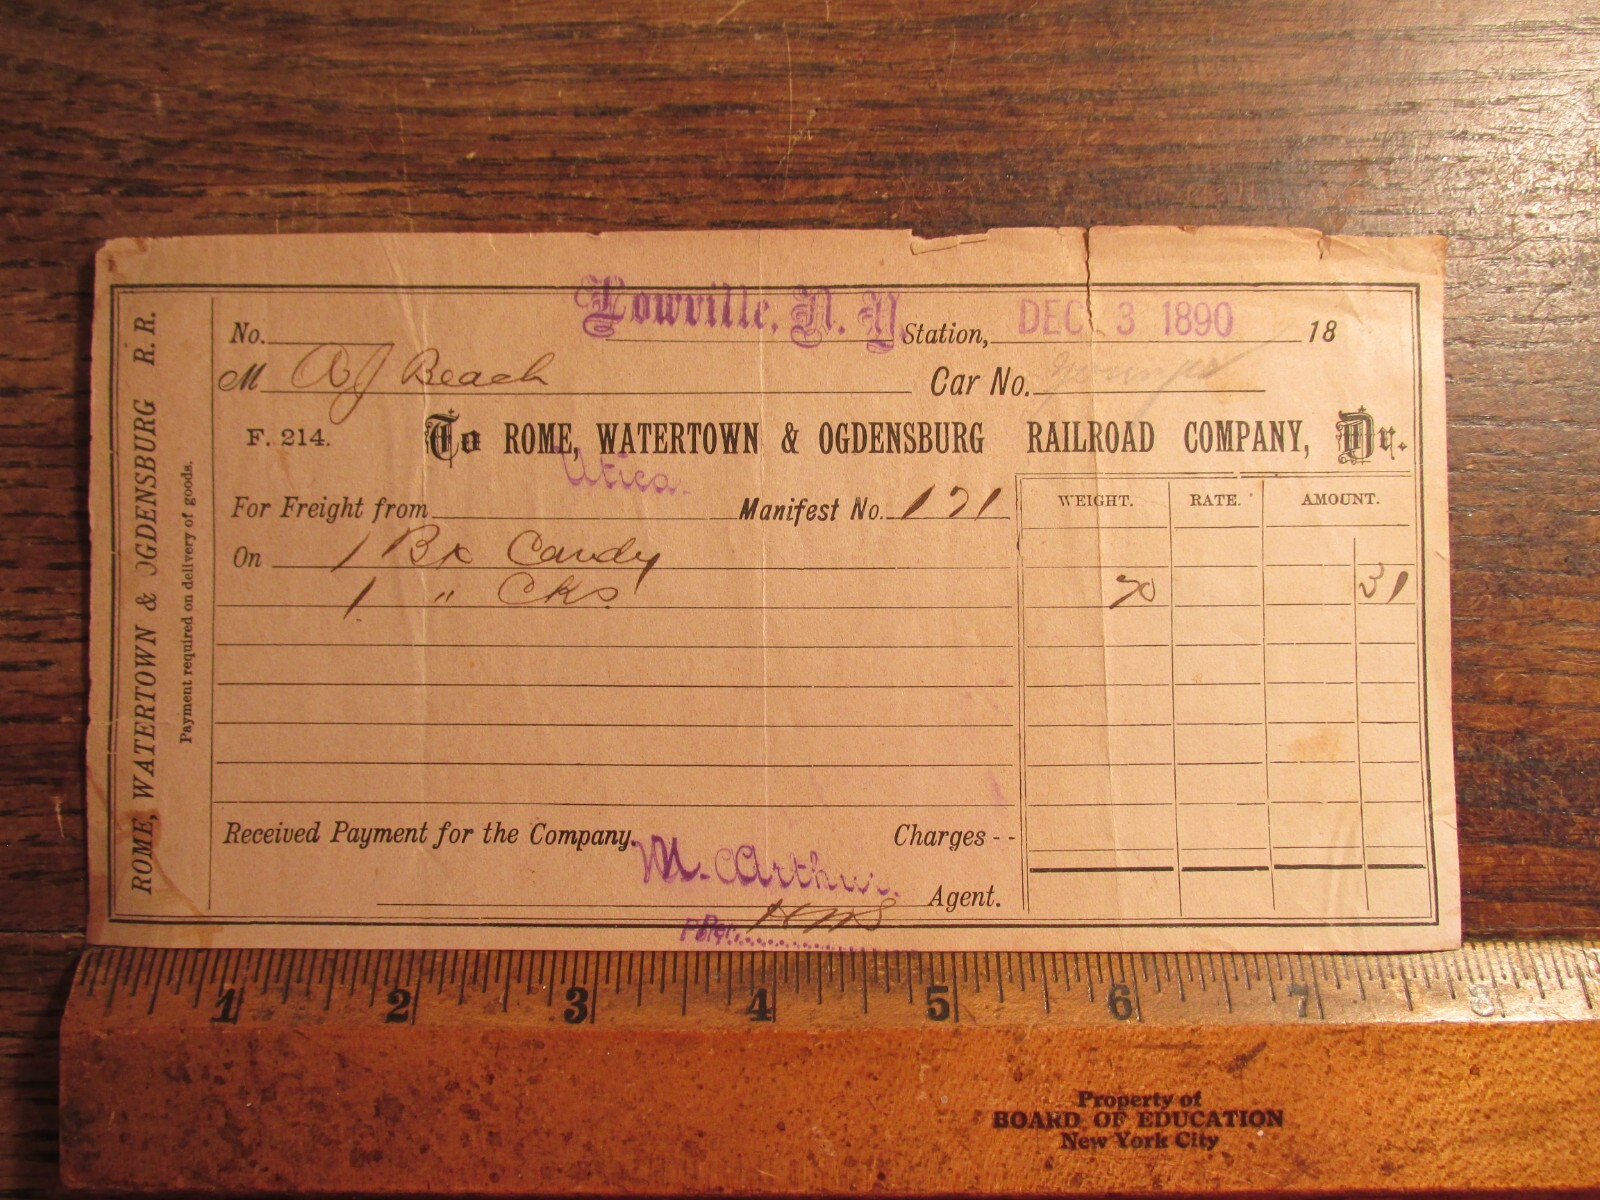 ROME, WATERTOWN & OGDENSBURG R. R.
Payment required on delivery of goods.
No. Lowville, N. Y. Station, DEC 3 1890 18
M A J Beach Car No.
F. 214. To ROME, WATERTOWN & OGDENSBURG RAILROAD COMPANY, Dr.
For Freight from Utica. Manifest No. 171
WEIGHT. RATE. AMOUNT.
On 1 Bx Candy
1 " Cks 70 31
Received Payment for the Company. Charges - -
M. McArthur. Agent.
Per HMS
1 2 3 4 5 6 7 8
Property of
BOARD OF EDUCATION
New York City